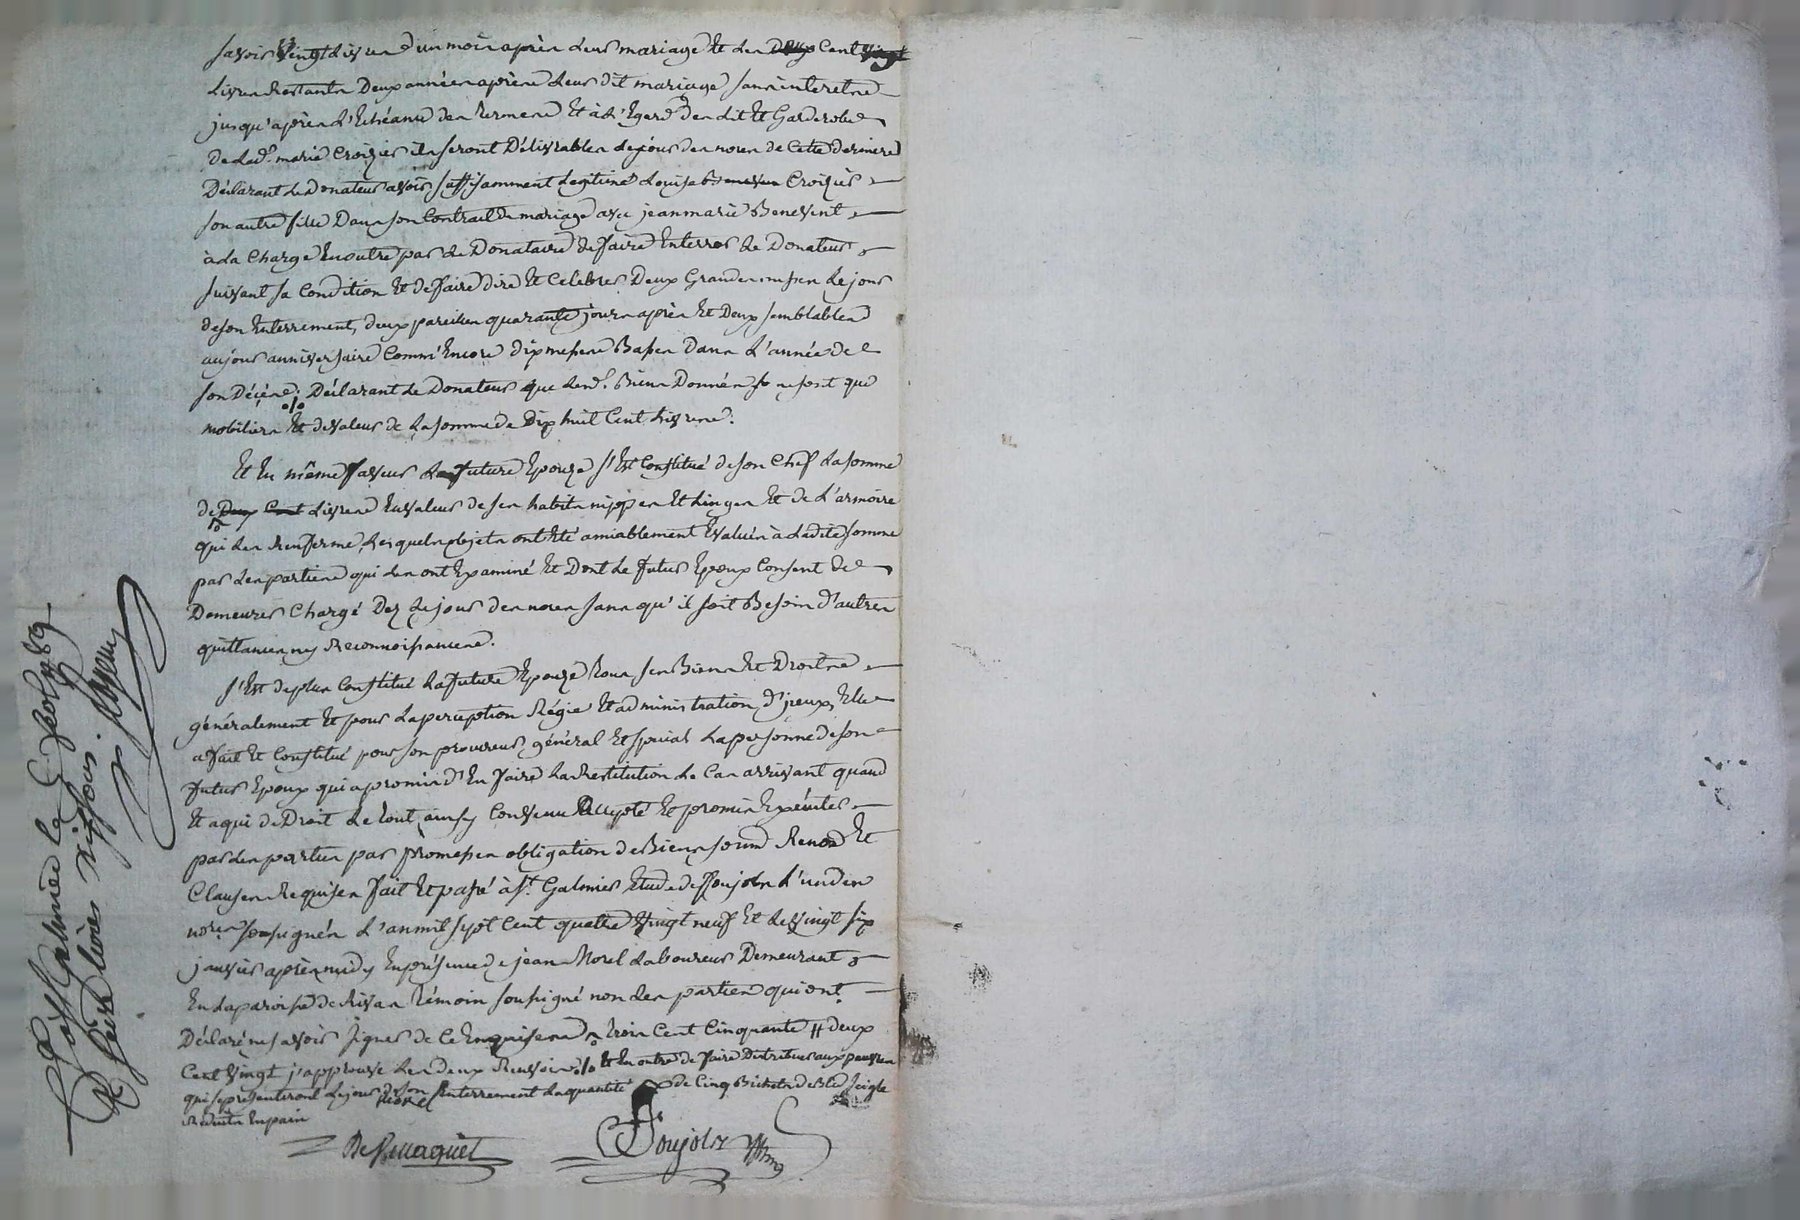 savoir Vingt Livres d'un mois après Leur mariage Et Les Deux Cent Vingt
Livres Restants Deux années après Leur dit mariage sans interets
jusqu'après L'Echéance des termes Et à L'Egard des Lit Et Garderobe
de Lad.e marie Croizier ils seront Délivrables Le jour des noces de Cette derniere
Déclarant Le Donateur avoir suffisamment Legitimé Croizier
son autre fille Dans son Contract de mariage avec jean marie Benevent
à La Charge En outre par Le Donataire de faire Enterrer Le Donateur
suivant sa Condition Et de faire dire Et Celebrer Deux Grandes messes Le jour
de son Enterrement, deux pareilles quarante jours après Et Deux semblables
au jour anniversaire Comm' Encore dix messes Basses Dans L'année de
son Décès; Déclarant Le Donateur que Lesd. Biens Donnés ne sont que
mobiliers Et de Valeur de La somme de Dix huit Cent Livres.
Et En même faveur La future Epouze s'Est Constitué de son Chef La somme
de Deux Cent Livres En valeur de ses habits nippes Et Linges Et de L'armoire
qui Les Renferme, Lesquels objets ont Eté amiablement Evalués à Ladite somme
par Les parties qui Les ont Examiné Et Dont Le futur Epoux Consent de
Demeurer Chargé Dez Le jour des noces sans qu'il soit Besoin d'autres
quittances ny Reconnoissances.
s'Est de plus Constitué La future Epouze tous ses Biens Et Droits
généralement Et pour La perception Régie Et administration, d'jceux, Elle
a fait Et Constitué pour son procureur général Et spécial La personne de son
futur Epoux qui a promis d'En faire La Restitution Le Cas arrivant quand
Et a qui de Droit Le tout ainsy Convenu Accepté Et promis Exécuter
par Les parties par promesses obligation de Biens soumd Renon Et
Clauses Requises fait Et passé à St. Galmier Etude de Poujolz L'un des
nores soussignés L'an mil sept Cent quatre Vingt neuf Et Le Vingt six
janvier après midy En présence de jean Morel Laboureur Demeurant
En La paroisse de Rivas témoin soussigné non Les parties qui ont
Déclaré ne savoir signer de Ce Enquises trois Cent Cinquante # deux
Cent Vingt j'approuve Les deux Renvois % Et En outre de faire Distribuer aux pauvres
qui se présenteront Le jour de son Enterrement La quantité de Cinq Bichets de Bled seigle
Réduits En pain
morel
Poujolz
Galmier Le 1789